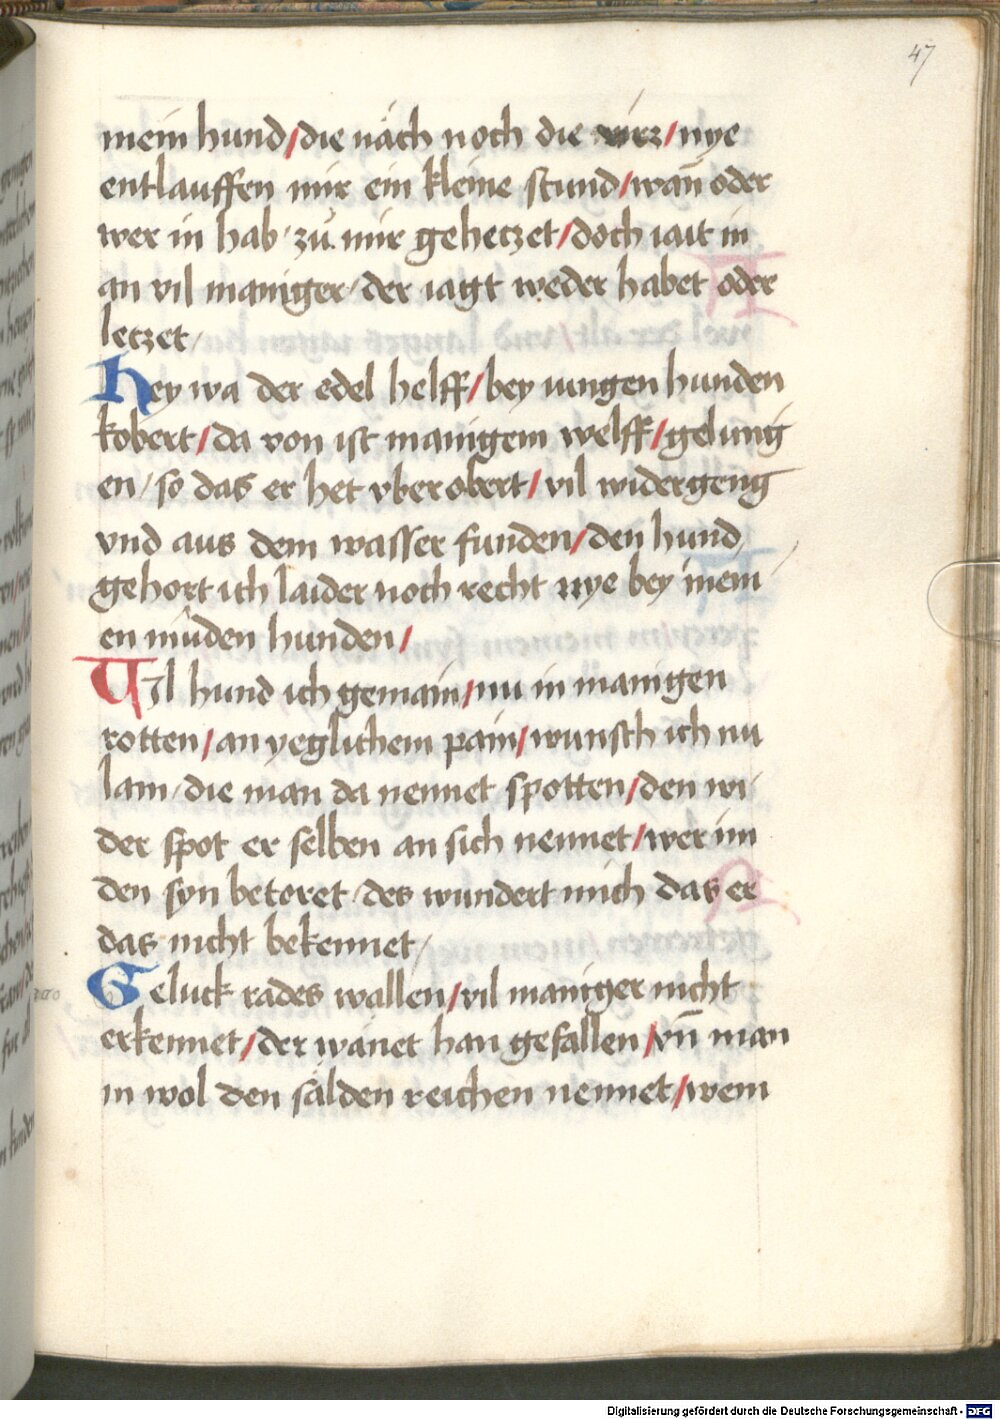 47
mein hund / die näch noch die virr / nye
entlauffen mir ein kleine stund / wañ oder
wer in hab · zů mir gehetzet / doch iait in
an vil maniger / der iagt weder habet oder
letzet /
Hey wa der edel helff / bey iungen hunden
kobert / da von ist manigem welff / gelung
en / so das er het vberobert / vil widergeng
vnd aus dem wasser funden / den hund /
gehort ich laider noch recht nye bey mein
en müden hunden /
Vil hund ich gemain / nu in manigen
rotten / an yeglichem pain / wunsch ich nu
lam / die man da nennet spotten / den wi
der spot er selben an sich nennet / wer im
den syn betoret / des wundert mich das er
das nicht bekennet /
Geluck rades wallen / vil maniger nicht
erkennet / der wänet han gefallen / vñ man
in wol den sälden reichen nennet / wem
Digitalisierung gefördert durch die Deutsche Forschungsgemeinschaft - DFG